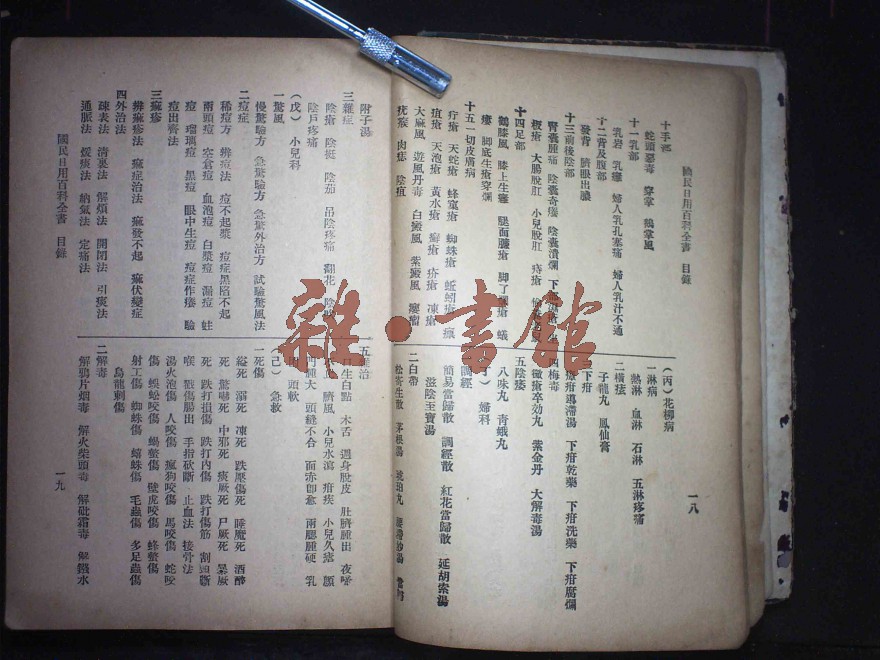 國民日用百科全書 目錄
十手部
蛇頭惡毒 穿掌 鵝掌風
十一乳部
乳岩 乳癰 婦人乳孔塞痛 婦人乳汁不通
十二背及腹部
發背 臍眼出膿
十三前後陰部
腎囊腫痛 陰囊奇癢 陰囊潰爛
板瘡 大腸脫肛 小兒脫肛 痔瘡
十四足部
鶴膝風 膝上生癰 腿面臁瘡
瘻 脚底生瘡穿爛
十五一切皮膚病
疔瘡 天蛇瘡 蜂窠瘡 蜘蛛瘡 蚯蚓瘡
疽瘡 天泡瘡 黃水瘡 癬瘡 疥瘡 凍瘡
大麻風 遊風丹毒 白癜風 紫癜風 癭瘤
疣瘊 肉痣 陰疽
(丙)花柳病
一淋病
熱淋 血淋 石淋 五淋疼痛
二橫痃
子龍丸 鳳仙膏
下疳
下疳乾藥 下疳洗藥 下疳腐爛
四梅毒
黴瘡卒効丸 紫金丹 大解毒湯
五陰痿
八味丸 青蛾丸
婦科
調經
簡易當歸散 調經散 紅花當歸散 延胡索湯
滋陰至寶湯
二白帶
松寄生散 茅根湯 琥珀丸
一八
附子湯
三雜症
陰瘡 陰挺 陰茄 吊陰疼痛 翻花
陰戶疼痛
(戊)小兒科
一驚風
慢驚驗方 急驚驗方 急驚外治方 試驗驚風法
二痘症
稀痘方 辨痘法 痘不起漿 痘症黑陷不起
兩頭痘 空倉痘 血泡痘 白漿痘 漏痘 蛀
痘 瑠璃痘 黑痘 眼中生痘 痘症作癢 驗
痘出齊法
三痲疹
辨痲疹法 痲症治法 痲發不起 痲伏變症
四外治法
疎表法 清裏法 解煩法 開閉法 引痰法
通脈法 煖痰法 納氣法 定痛法
口生白點 木舌 週身脫皮 肚臍腫出 夜啼
臍風 小兒水瀉 疳疾 小兒久瘧 顖
門腫大 頭縫不合 面赤卽愈 兩腮腫硬 乳
頭軟
(己)急救
一死傷
縊死 溺死 凍死 跌壓傷死 睡魔死 酒醉
死 驚嚇死 中邪死 痰厥死 尸厥死 暴厥
死 跌打損傷 跌打內傷 跌打傷筋 割頭斷
喉 戳傷腸出 手指砍斷 止血法 接骨法
湯火泡傷 人咬傷 瘋狗咬傷 馬咬傷 蛇咬
傷 蜈蚣咬傷 蝎螫傷 壁虎咬傷 蜂螫傷
射工傷 蜘蛛傷 毛蟲傷 多足蟲傷
烏龍刺傷
二解毒
解鴉片烟毒 解火柴頭毒 解砒霜毒 解鏹水
國民日用百科全書 目錄
一九
雜·書館